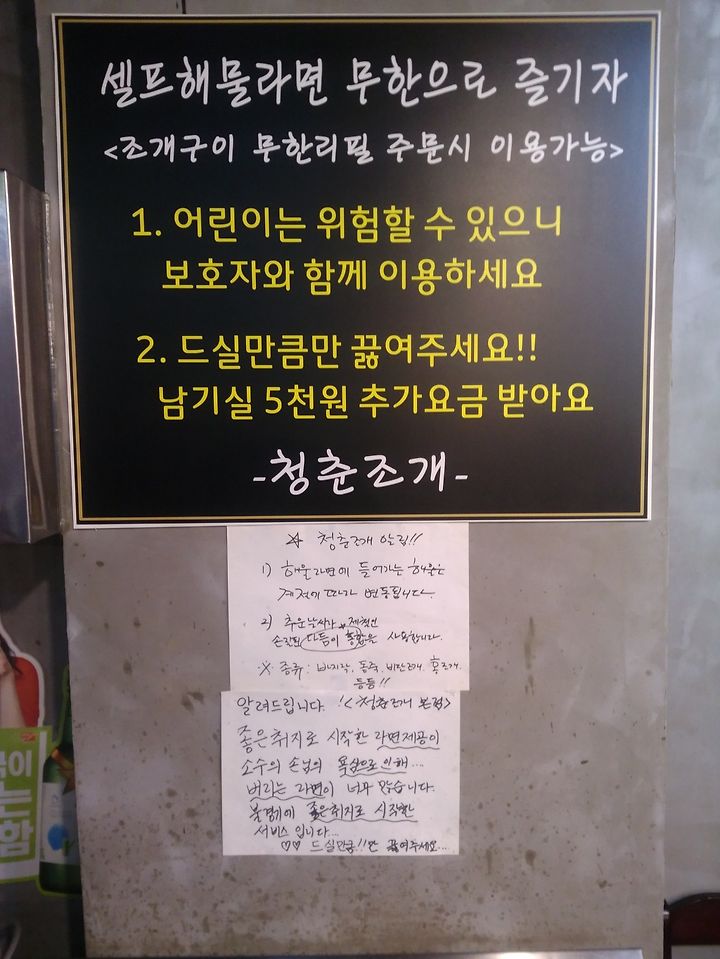 셀프해물라면 무한으로 즐기자
<조개구이 무한리필 주문시 이용가능>
1. 어린이는 위험할 수 있으니
보호자와 함께 이용하세요
2. 드실만큼만 끓여주세요!!
남기실 5천원 추가요금 받아요
-청춘조개-
☆ 청춘조개 알림!!
1) 해물라면에 들어가는 해물은
계절에 따라 변동됩니다.
2) 추운날씨가 제철인
손질된 다듬이 홍합을 사용합니다.
※ 종류: 바지락, 동죽, 비단조개, 홍조개
등등!!
알려드립니다. !<청춘조개 본점>
좋은취지로 시작한 라면제공이
소수의 손님의 욕심으로 인해...
버리는 라면이 너무 많습니다.
불경기에 좋은취지로 시작한
서비스 입니다...
♡♡ 드실만큼!!만 끓여주세요...
이
는
함